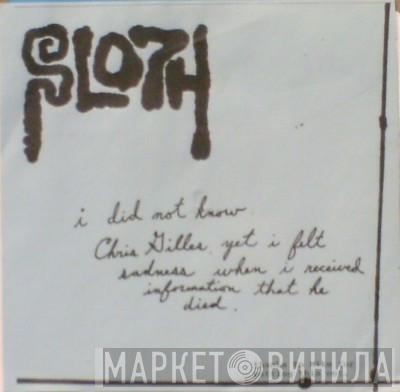 SLOTH
i did not know
Chris Gilles, yet i felt
sadness when i received
information that he
died.
МАРКЕТ ВИНИЛА